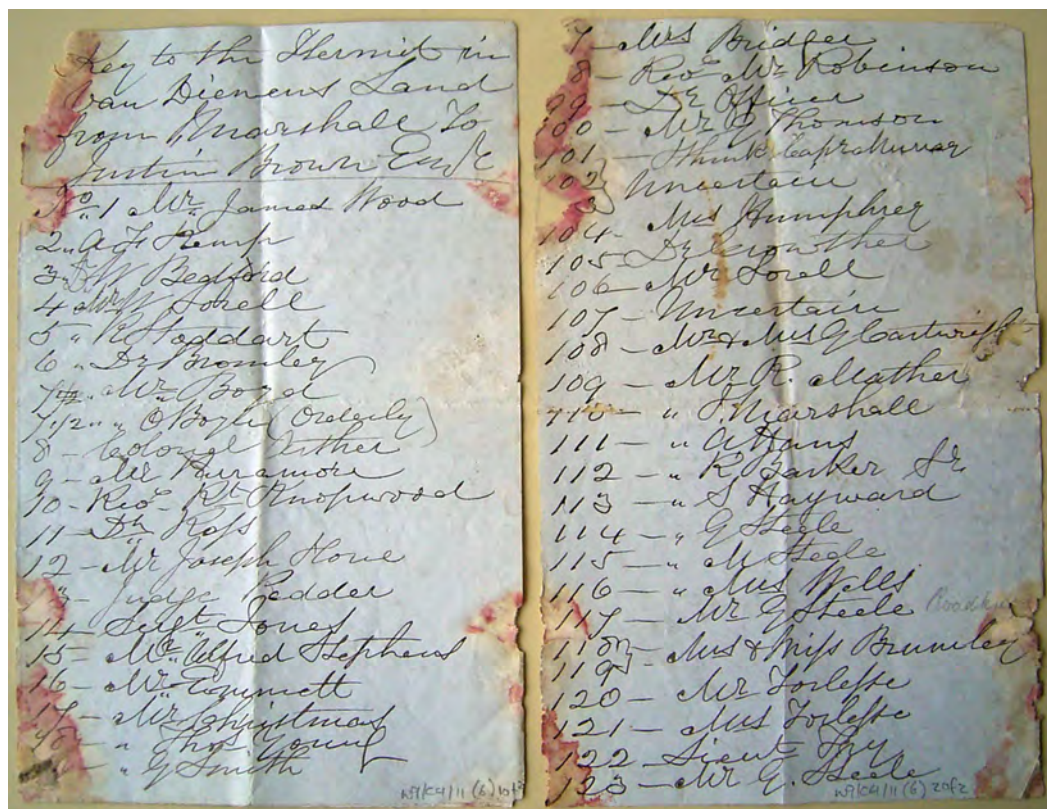 Key to the Hermit in
Van Diemens Land
from Marshall To
Justin Brown Esqe
No 1 Mr James Wood
2 " A F Kemp
3 Dr W Bedford
4 Mr W Sorell
5 " R Stoddart
6 " Dr Bromley
7 " Mr Boyd
7 1/2 " " O Boyle (Orderly)
8 - Colonel Arther
9 - Mr Parramore
10 - Revd Rt Knopwood
11 - Dr Ross
12 - Mr Joseph Hone
13 - Judge Pedder
14 - Lieut Jones
15 - Mr Alfred Stephens
16 - Mr Emmett
17 - Mr Christmas
18 - " Thos Young
" G Smith
W9/C4/11 (6) 1of2
7 - Mrs Bridger
8 - Revd Mr Robinson
99 - Dr Officer
100 - Mr G Thomson
101 - I think Capt Murray
102 } Uncertain
3 }
104 - Mrs Humphrey
105 - Dr Crowther
106 - Mr Sorell
107 - Uncertain
108 - Mr & Mrs G Cartwright
109 - Mr R. Mather
110 - " J Marshall
111 - "
112 - " R Barker Jr
113 - " S Hayward
114 - " G Steele
115 - " M Steele
116 - " Mrs Wells
117 - Mr G Steele
118 } - Mrs & Miss Brumley
119 }
120 - Mr Forlesse
121 - Mrs Forlesse
122 - Lieut Fry
123 - Mr G. Steele
W9/C4/11 (6) 2of2